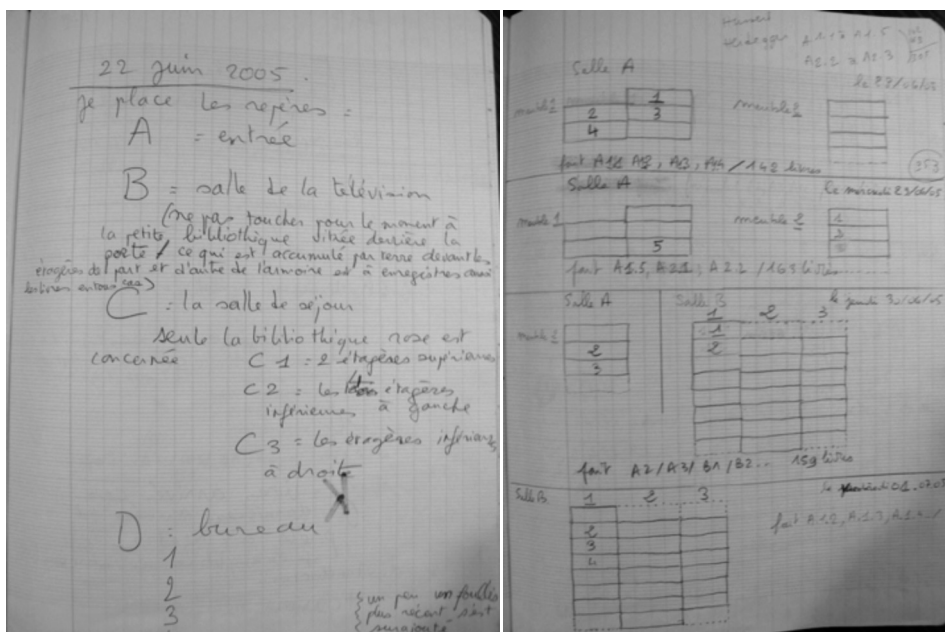 22 Juin 2005.
Je place les repères :
A = entrée
B = salle de la télévision
(ne pas toucher pour le moment à
la petite bibliothèque vitrée derrière la
porte / ce qui est accumulé par terre devant les
étagères de part et d'autre de l'armoire est à enregistrer
C : la salle de séjour
seule la bibliothèque rose est
concernée C 1 : 2 étagères supérieures
C 2 = les étagères
inférieures à gauche
C 3 = les étagères inférieures
à droite
D : bureau
1
2
3
un peu
plus récent s'est
surajouté
Salle A
meuble 1
1
2 3
4
meuble 2
fait A1.1 A1.2, A1.3, A1.4 / 142 livres
353
Salle A
le mercredi 29/06/05
meuble 1
5
meuble 2
1
2
fait A1.5, A2.1, A2.2 / 163 livres
Salle A
2
3
Salle B
le jeudi 30/06/05
1 2 3
1
2
fait A2 / A3 / B1 / B2... 159 livres
Salle B
1 2 3
2
3
4
le vendredi 01.07.05
fait